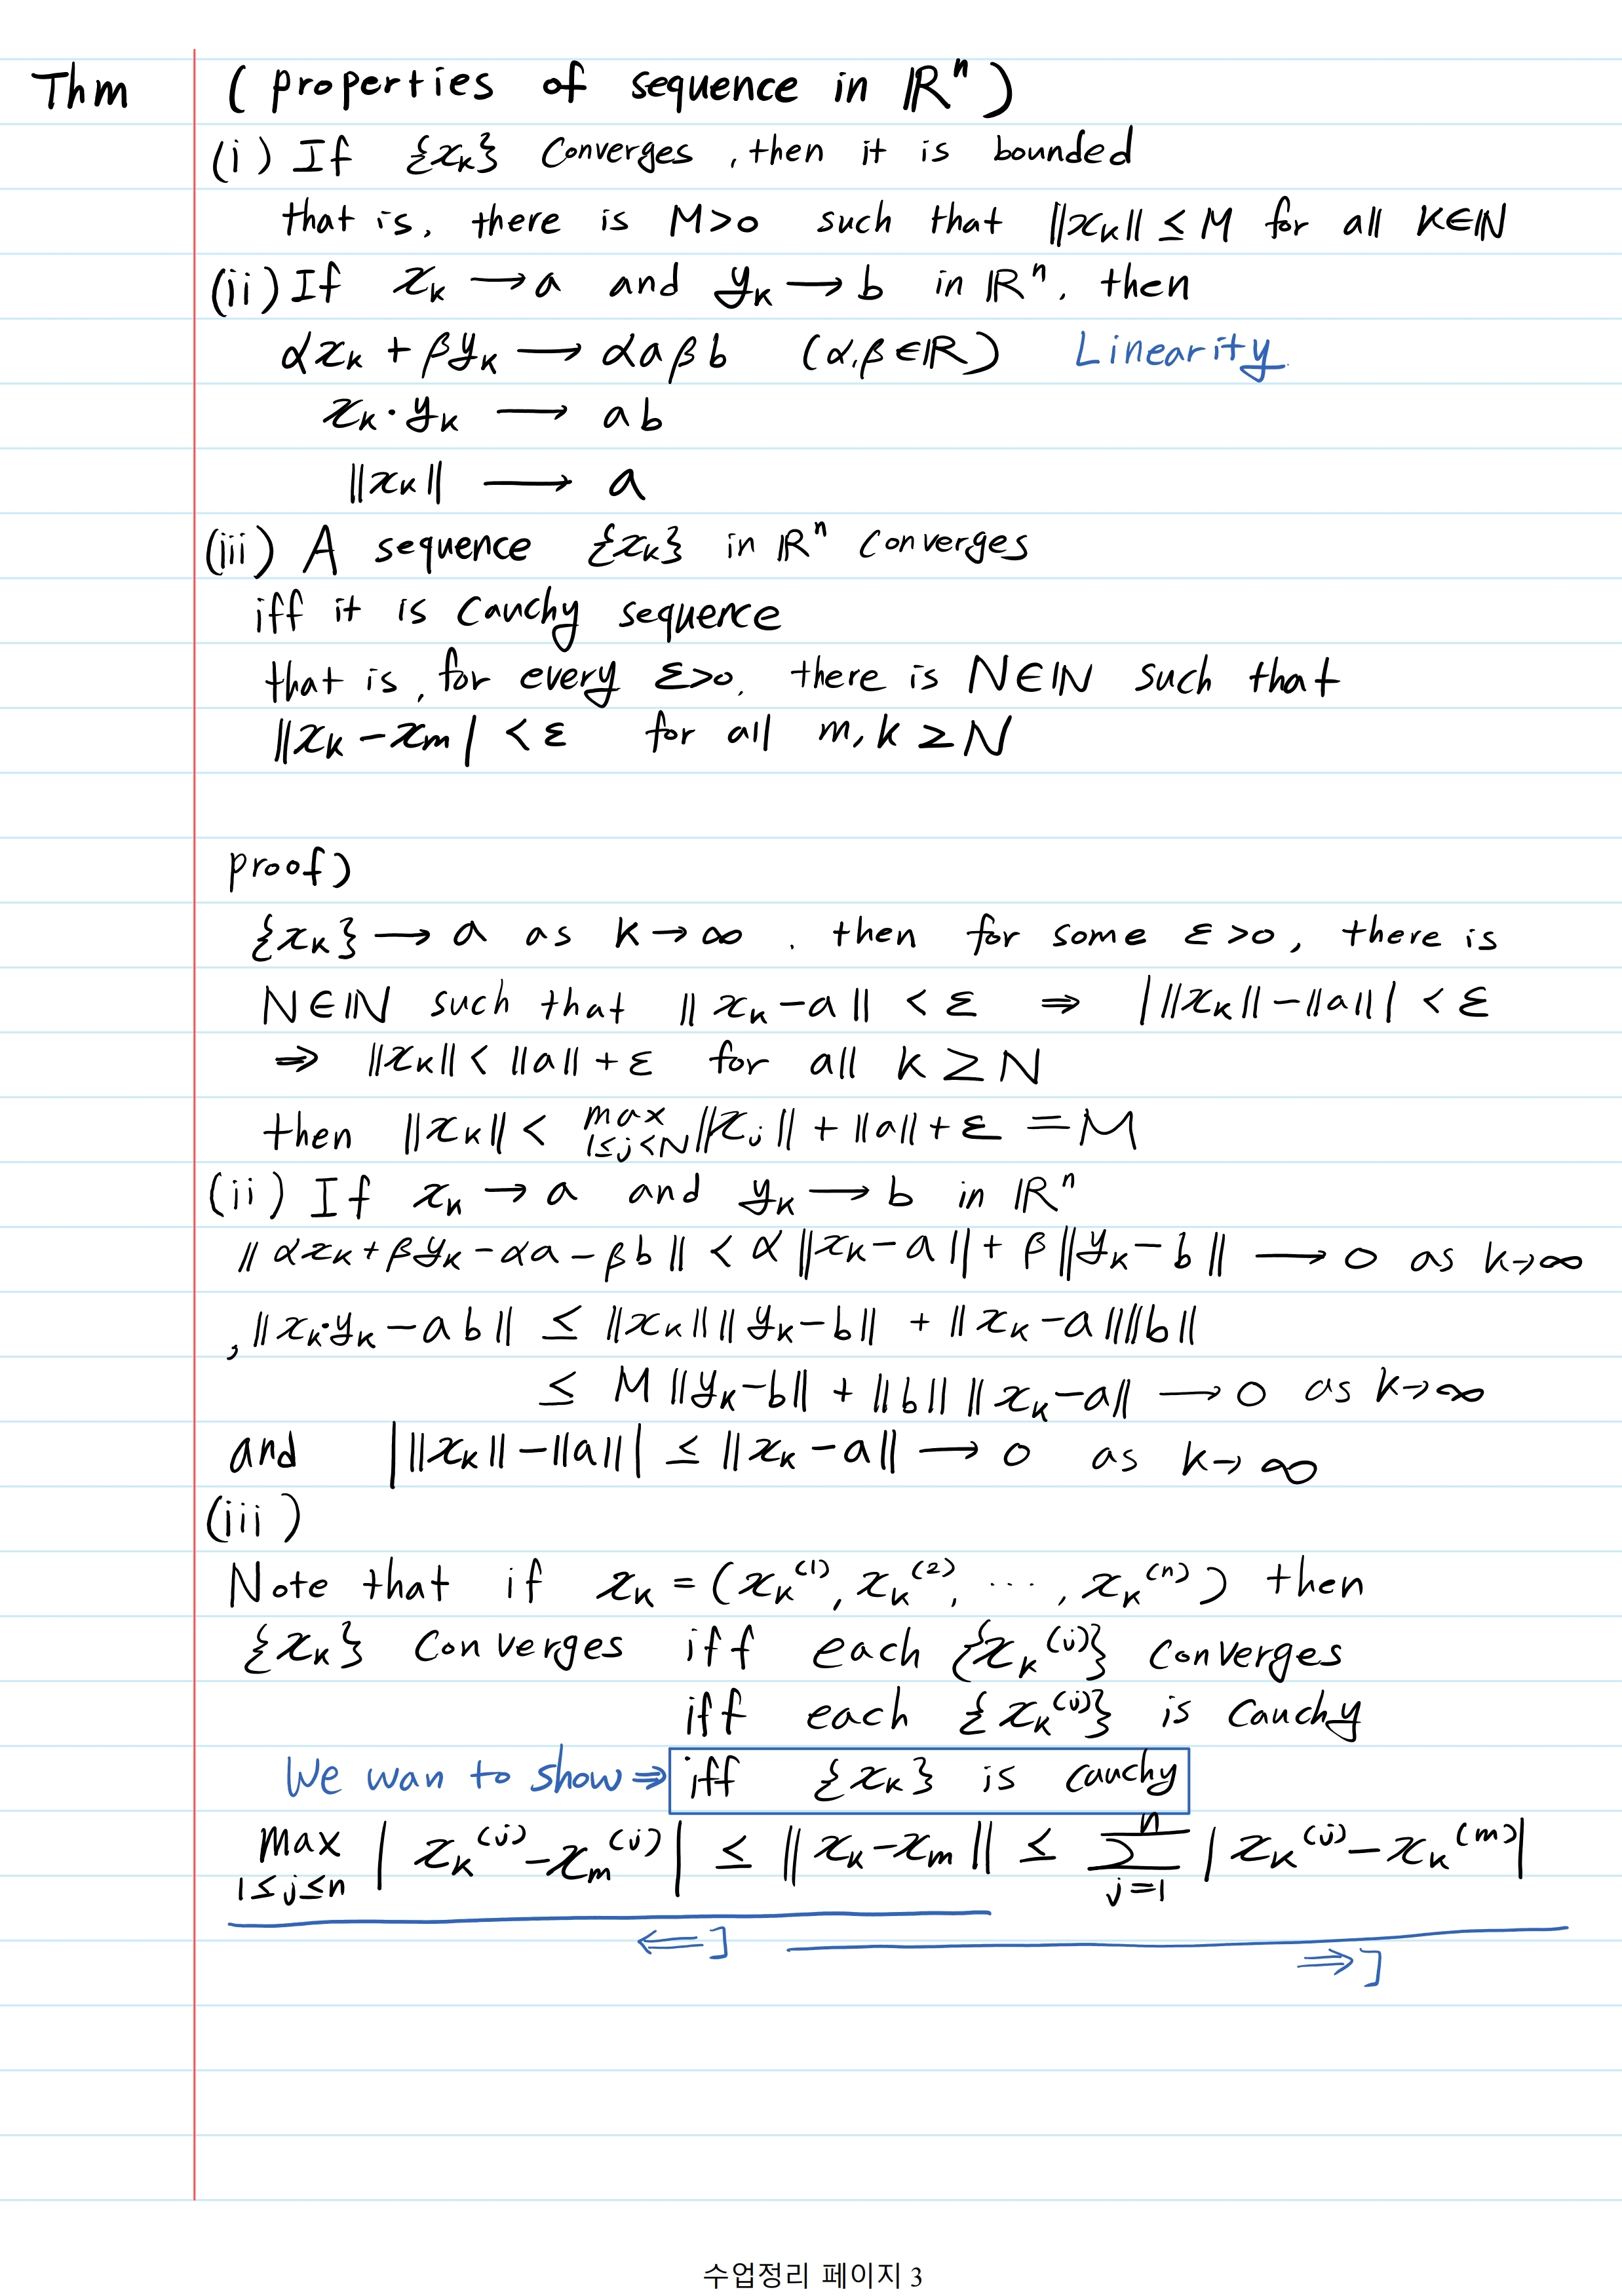 Thm (properties of sequence in ℝⁿ)
(i) If {xₖ} Converges, then it is bounded
that is, there is M>0 such that ‖xₖ‖ ≤ M for all K∈ℕ
(ii) If xₖ → a and yₖ → b in ℝⁿ, then
αxₖ + βyₖ → αaβb (α,β∈ℝ) Linearity
xₖ·yₖ → ab
‖xₖ‖ → a
(iii) A sequence {xₖ} in ℝⁿ Converges
iff it is Cauchy sequence
that is, for every ε>0, there is N∈ℕ such that
‖xₖ − xₘ| < ε for all m,k ≥ N
proof)
{xₖ} → a as k→∞. then for some ε>0, there is
N∈ℕ such that ‖xₖ − a‖ < ε ⇒ |‖xₖ‖ − ‖a‖| < ε
⇒ ‖xₖ‖ < ‖a‖ + ε for all k ≥ N
then ‖xₖ‖ < max_{1≤j<N} ‖xⱼ‖ + ‖a‖ + ε = M
(ii) If xₖ → a and yₖ → b in ℝⁿ
‖αxₖ + βyₖ − αa − βb‖ < α‖xₖ − a‖ + β‖yₖ − b‖ → 0 as k→∞
, ‖xₖ·yₖ − ab‖ ≤ ‖xₖ‖‖yₖ − b‖ + ‖xₖ − a‖‖b‖
≤ M‖yₖ − b‖ + ‖b‖‖xₖ − a‖ → 0 as k→∞
and |‖xₖ‖ − ‖a‖| ≤ ‖xₖ − a‖ → 0 as k→∞
(iii)
Note that if xₖ = (xₖ⁽¹⁾, xₖ⁽²⁾, ⋯, xₖ⁽ⁿ⁾) then
{xₖ} Converges iff each {xₖ⁽ʲ⁾} Converges
iff each {xₖ⁽ʲ⁾} is Cauchy
We wan to show ⇒ iff {xₖ} is cauchy
max_{1≤j≤n} |xₖ⁽ʲ⁾ − xₘ⁽ʲ⁾| ≤ ‖xₖ − xₘ‖ ≤ ∑_{j=1}^{n} |xₖ⁽ʲ⁾ − xₖ⁽ᵐ⁾|
⇐] ⇒]
수업정리 페이지 3